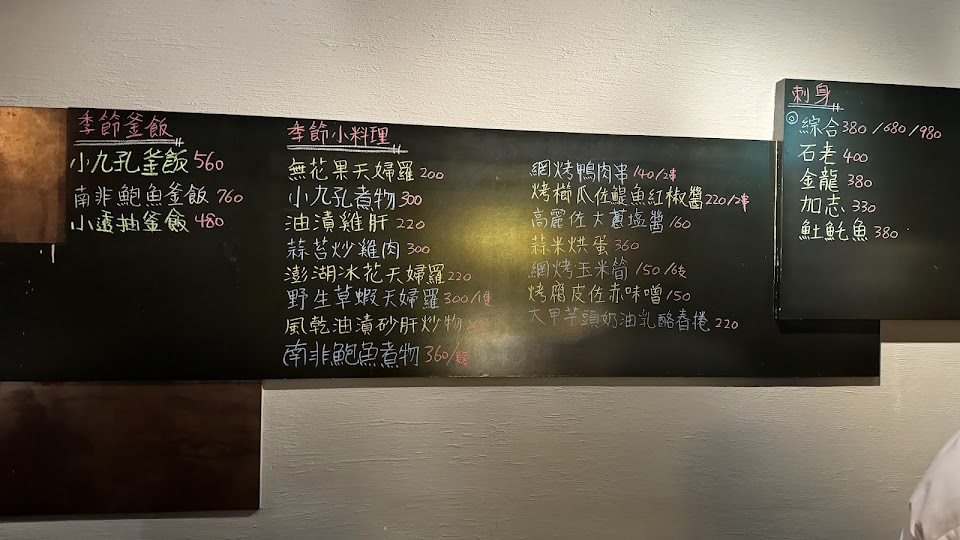 季節釜飯
小九孔釜飯 560
南非鮑魚釜飯 760
小透抽釜飯 480
季節小料理
無花果天婦羅 200
小九孔煮物 300
油漬雞肝 220
蒜苔炒雞肉 300
澎湖冰花天婦羅 220
野生草蝦天婦羅 300/隻
風乾油漬砂肝炒物
南非鮑魚煮物 360/顆
網烤鴨肉串 140/2串
烤櫛瓜佐鯷魚紅椒醬 220/2串
高麗佐大蔥塩醬 160
蒜米烘蛋 360
網烤玉米筍 150/6支
烤腐皮佐赤味噌 150
大甲芋頭奶油乳酪春捲 220
刺身
◎綜合 380/680/980
石老 400
金龍 380
加志 330
𩵚魠魚 380